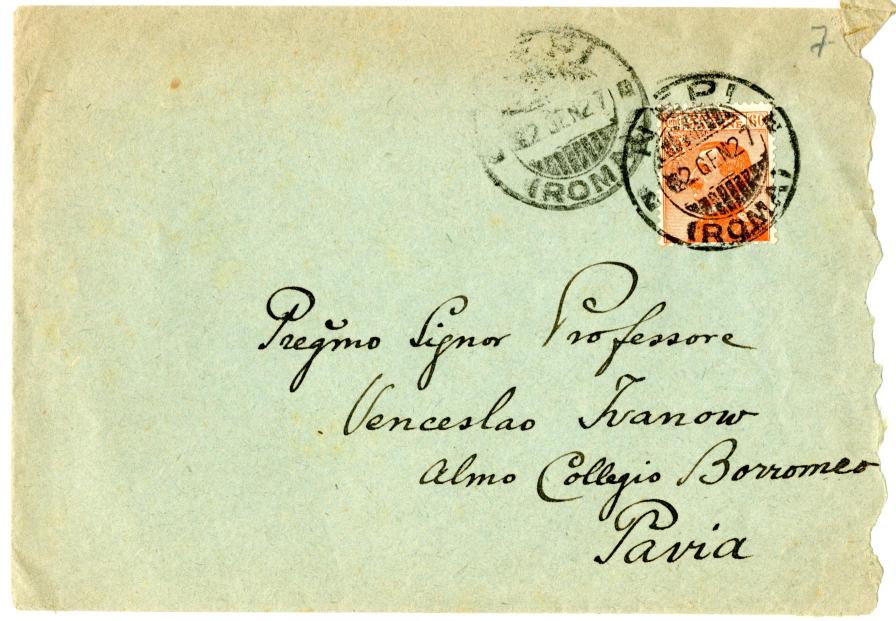 7
NEPI
GEN27
(ROMA)
NEPI
GEN27
(ROMA)
60
Preg̃mo Signor Professore
Venceslao Ivanow
Almo Collegio Borromeo
Pavia